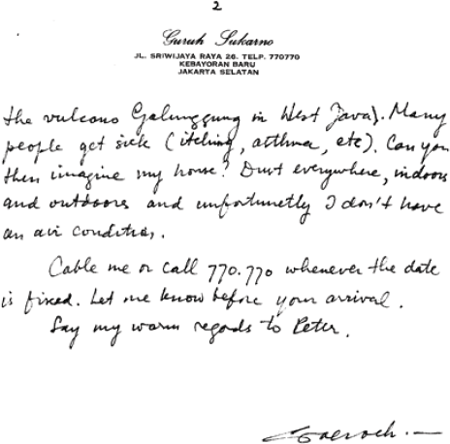 2
Guruh Sukarno
JL. SRIWIJAYA RAYA 26. TELP. 770770
KEBAYORAN BARU
JAKARTA SELATAN
the vulcano Galunggung in West Java). Many
people get sick (itching, asthma, etc). Can you
then imagine my house? Dust everywhere, indoors
and outdoors and unfortunetly I don't have
an air condition.
Cable me or call 770.770 whenever the date
is fixed. Let me know before your arrival.
Say my warm regards to Peter.